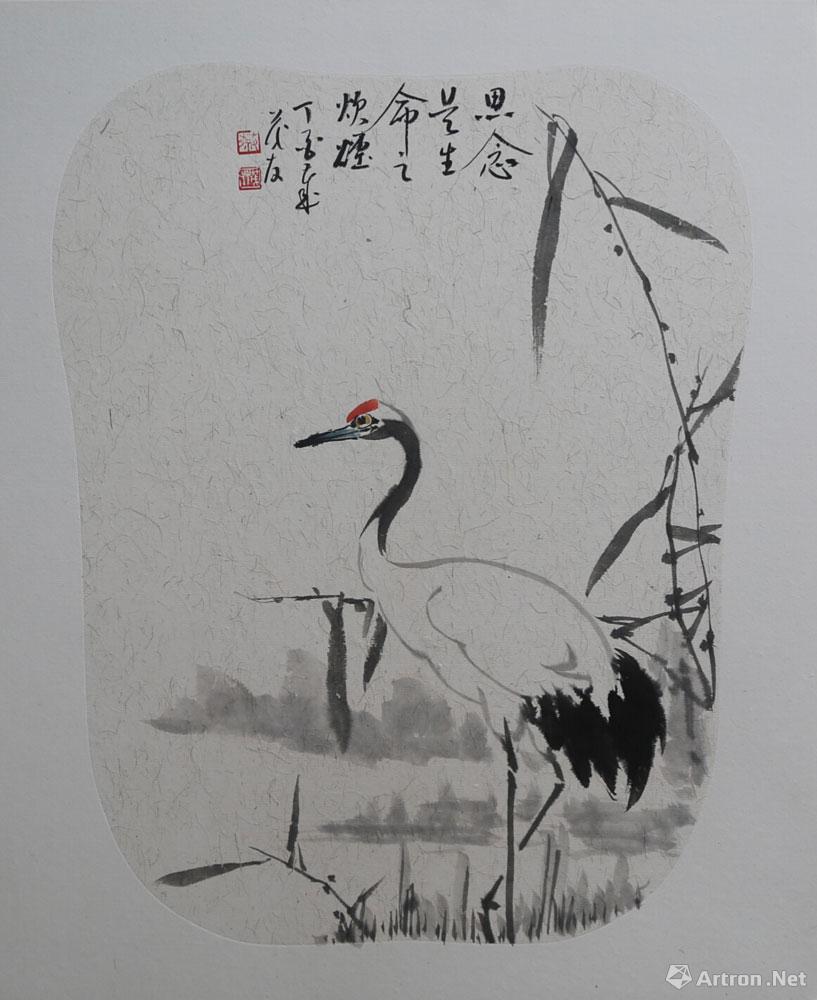 思念
是生
命之
炊煙
丁酉
茂友
Artron.Net